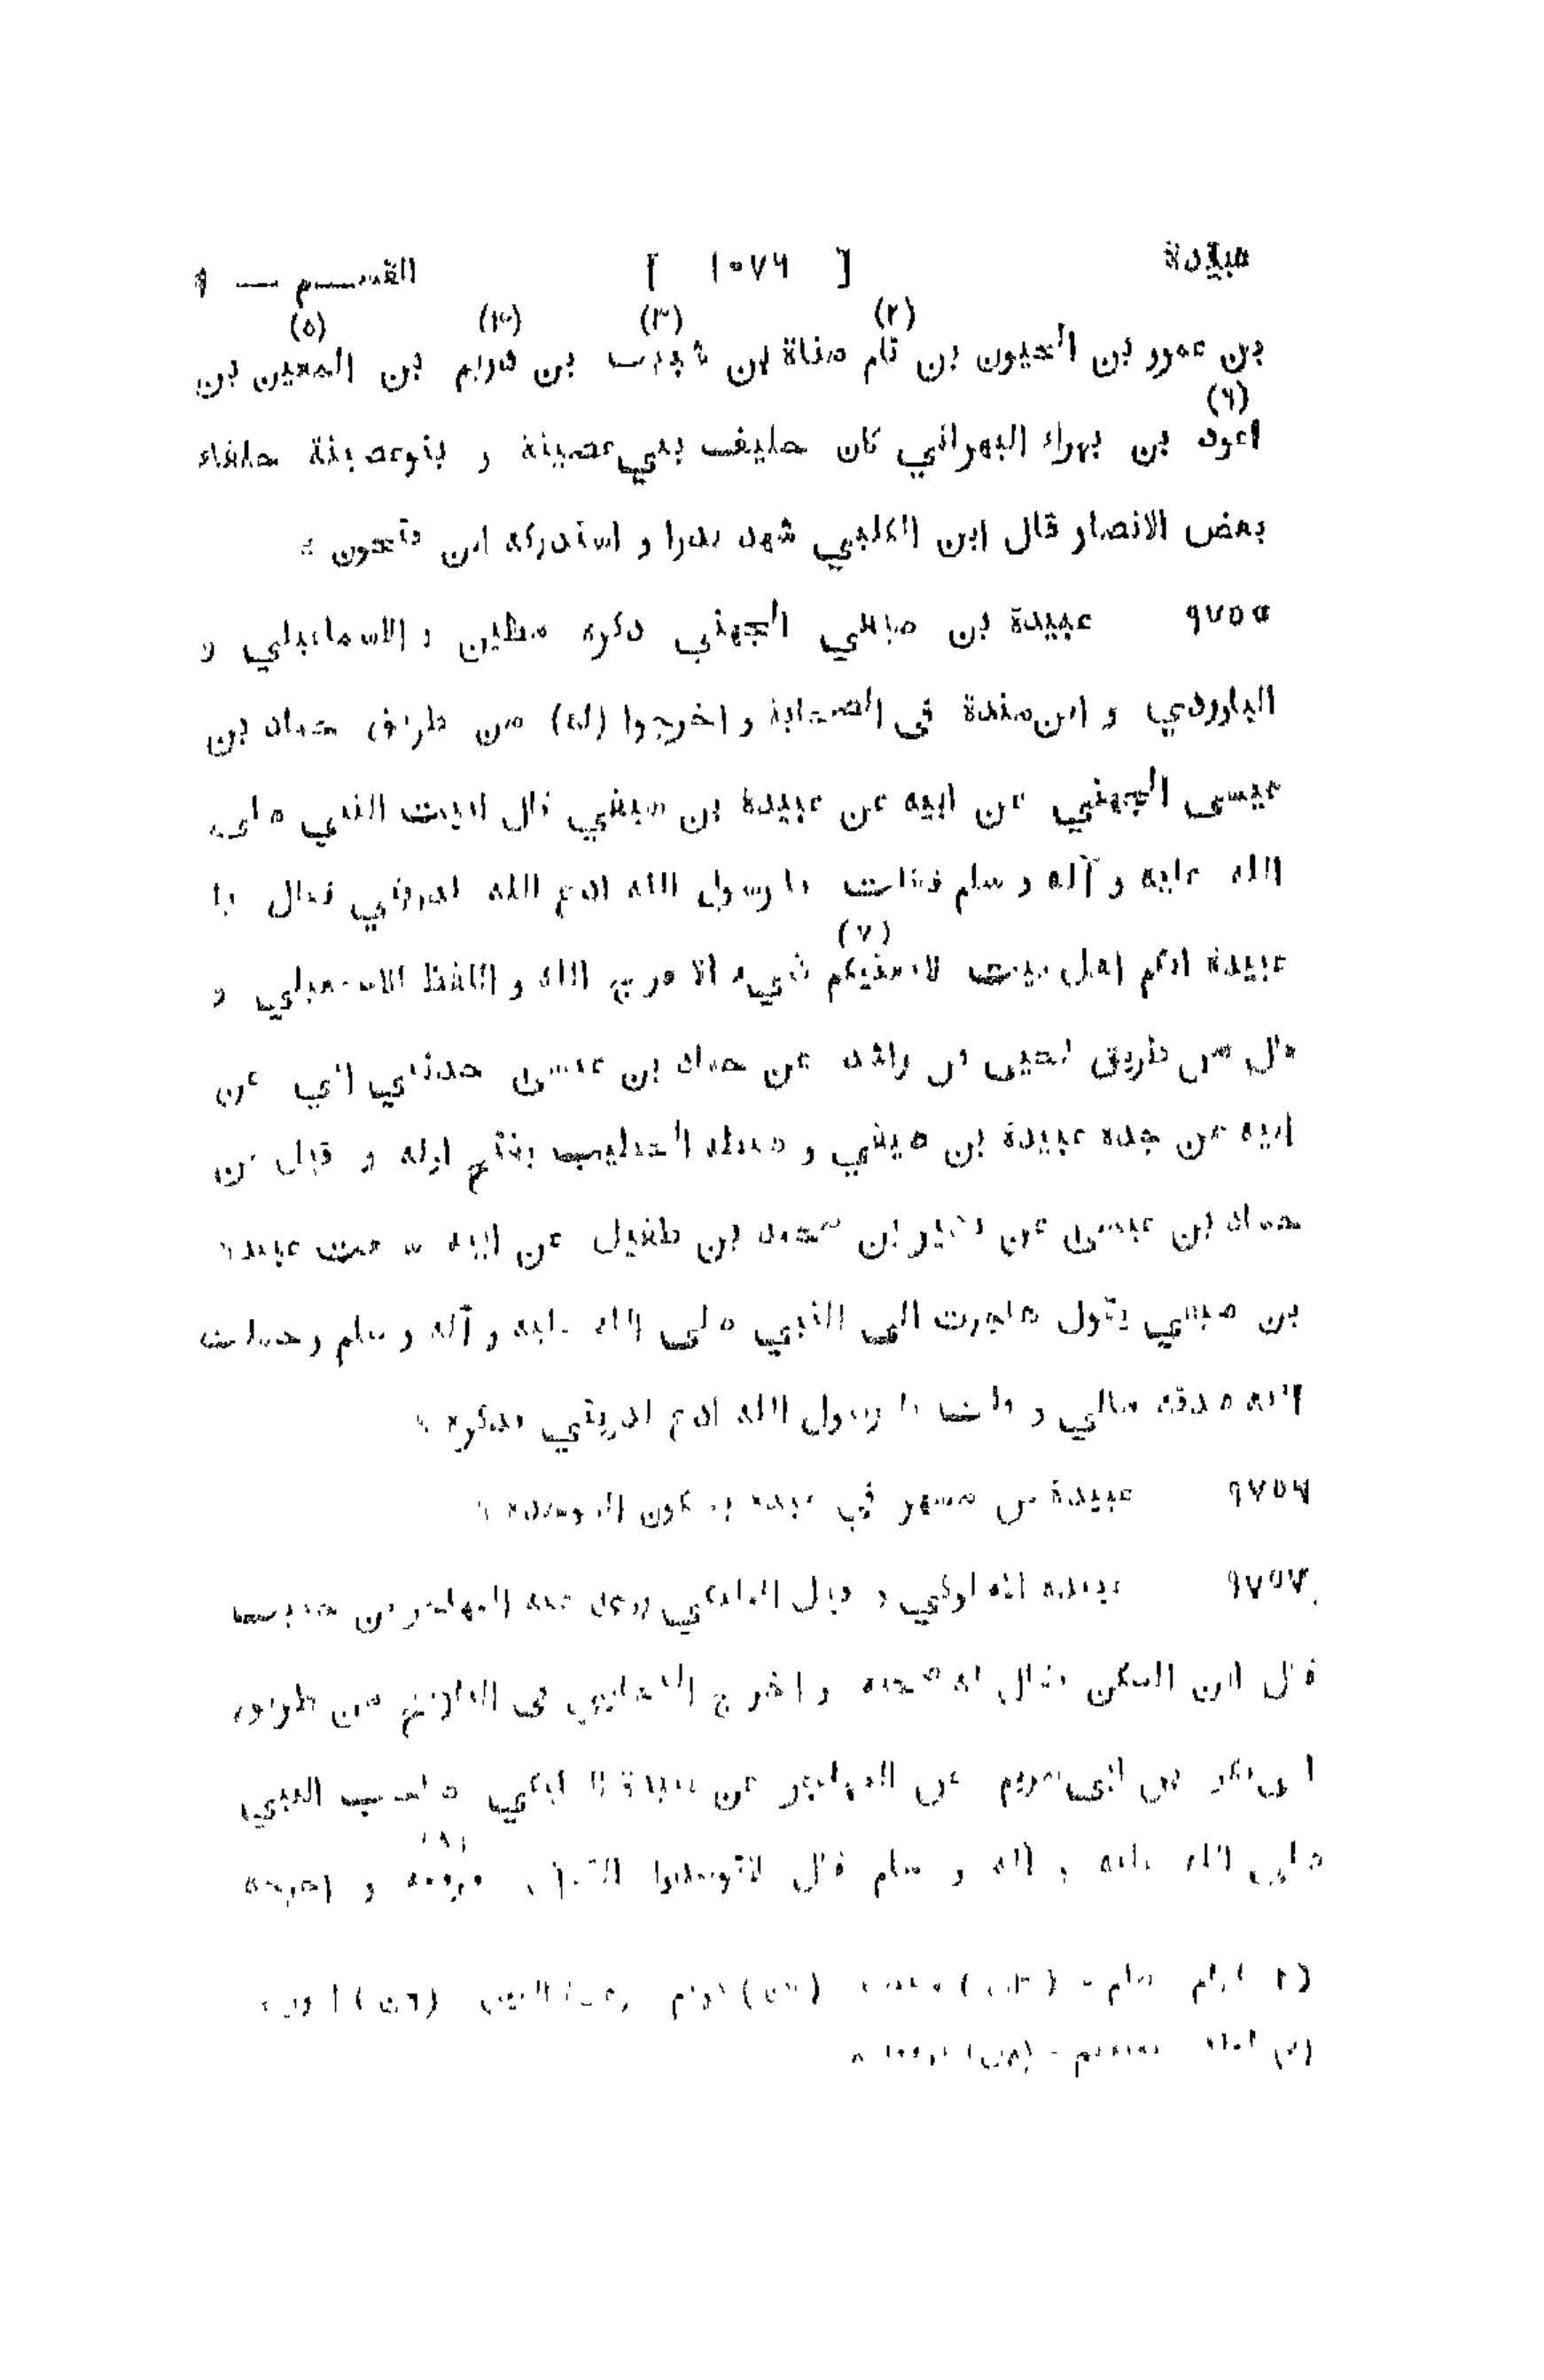 عبيدة [ ١٠٧٦ ] القســـم — ٩
(٢) (٣) (٤) (٥)
بن عمرو بن الحيون بن تام مناة بن شبيب بن دريم بن المعين بن
(٦)
اعود بن بهراء البهراني كان حليف بني عصينة و بنو عصينة حلفاء
بعض الانصار قال ابن الكلبي شهد بدرا و استدركه ابن فتحون *
٩٧٥٥ عبيدة بن صيفي الجهني ذكره مطين و الاسماعيلي و
الباوردي و ابن مندة فى الصحابة و اخرجوا (له) من طريق حماد بن
عيسى الجهني عن ابيه عن عبيدة بن صيفي قال اتيت النبي صلى
الله عليه و آله و سلم فقلت يا رسول الله ادع الله لذريتي فقال يا
(٧)
عبيدة انكم اهل بيت لا شيء الا فرج الله و اللفظ للاسمعيلي و
قال من طريق يحيى بن راشد عن حماد بن عيسى حدثني ابي عن
ابيه عن جده عبيدة بن صيفي و ضبطه الخطيب بفتح اوله و قيل عن
حماد بن عيسى عن بشير بن محمد بن طفيل عن ابيه سمعت عبيدة
بن صيفي يقول هاجرت الى النبي صلى الله عليه و آله و سلم و حملت
اليه صدقة مالي و قلت يا رسول الله ادع لذريتي فذكره *
٩٧٥٦ عبيدة بن مسهر في عبدة بسكون الموحدة *
٩٧٥٧ عبيدة الاملوكي و قيل المليكي روى عنه المهاجر بن حبيب
قال ابن السكن يقال له صحبة و اخرج البخاري فى التاريخ من طريق
ابى بكر بن ابى مريم عن المهاجر عن عبيدة المليكي صاحب النبي
(٨)
صلى الله عليه و آله و سلم قال لا توسدوا القرآن و اخرجه